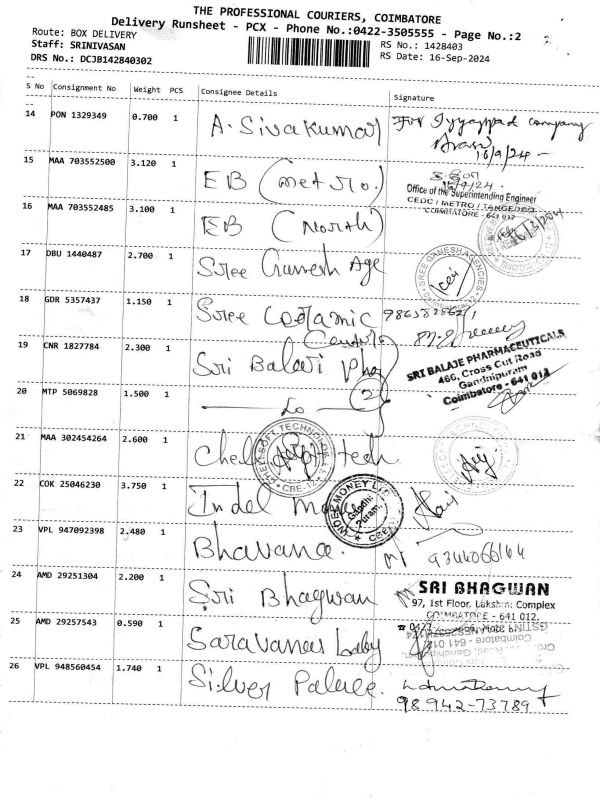 THE PROFESSIONAL COURIERS, COIMBATORE
Delivery Runsheet - PCX - Phone No.:0422-3505555 - Page No.:2
Route: BOX DELIVERY
Staff: SRINIVASAN
DRS No.: DCJB142840302
RS No.: 1428403
RS Date: 16-Sep-2024
S No Consignment No Weight PCS Consignee Details Signature
14 PON 1329349 0.700 1 A. Sivakumar For Iyyappad company
16/9/24 -
15 MAA 703552500 3.120 1 EB (metro.)
16/9/24.
Office of the Superintending Engineer
CEDC / METRO / TANGEDCO
COIMBATORE - 641 012
16 MAA 703552485 3.100 1 EB (North)
17 DBU 1440487 2.700 1 Sree Ganesh Age
SREE GANESH AGENCIES
18 GDR 5357437 1.150 1 Sree Ceramic
Centre
19 CNR 1827784 2.300 1 Sri Balaji Pha
SRI BALAJE PHARMACEUTICALS
466, Cross Cut Road
Gandhipuram
Coimbatore - 641 012
20 MTP 5069828 1.500 1 — Do — (2)
21 MAA 302454264 2.600 1 Chell Soft tech
CHELLSOFT TECHNOLOGIES
CBE-12
22 COK 25046230 3.750 1 Indel Money
INDEL MONEY LTD
Gandhi
Puram,
23 VPL 947092398 2.480 1 Bhavana.
24 AMD 29251304 2.200 1 Sri Bhagwan
SRI BHAGWAN
97, 1st Floor, Lakshmi Complex
COIMBATORE - 641 012.
25 AMD 29257543 0.590 1 Saravanas Laby
26 VPL 948560454 1.740 1 Silver Palace.
98942-73789